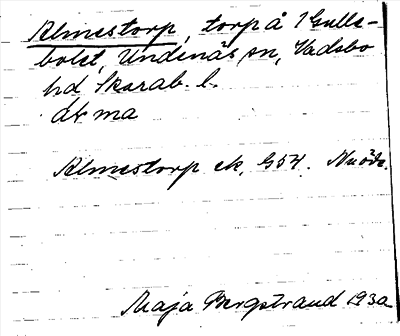 Almestorp, torp å Gulle-
bolet, Undenäs sn, Vadsbo
hd Skarab. l.
Almestorp ek. G54. Nu öde.
Maja Bergstrand 1930